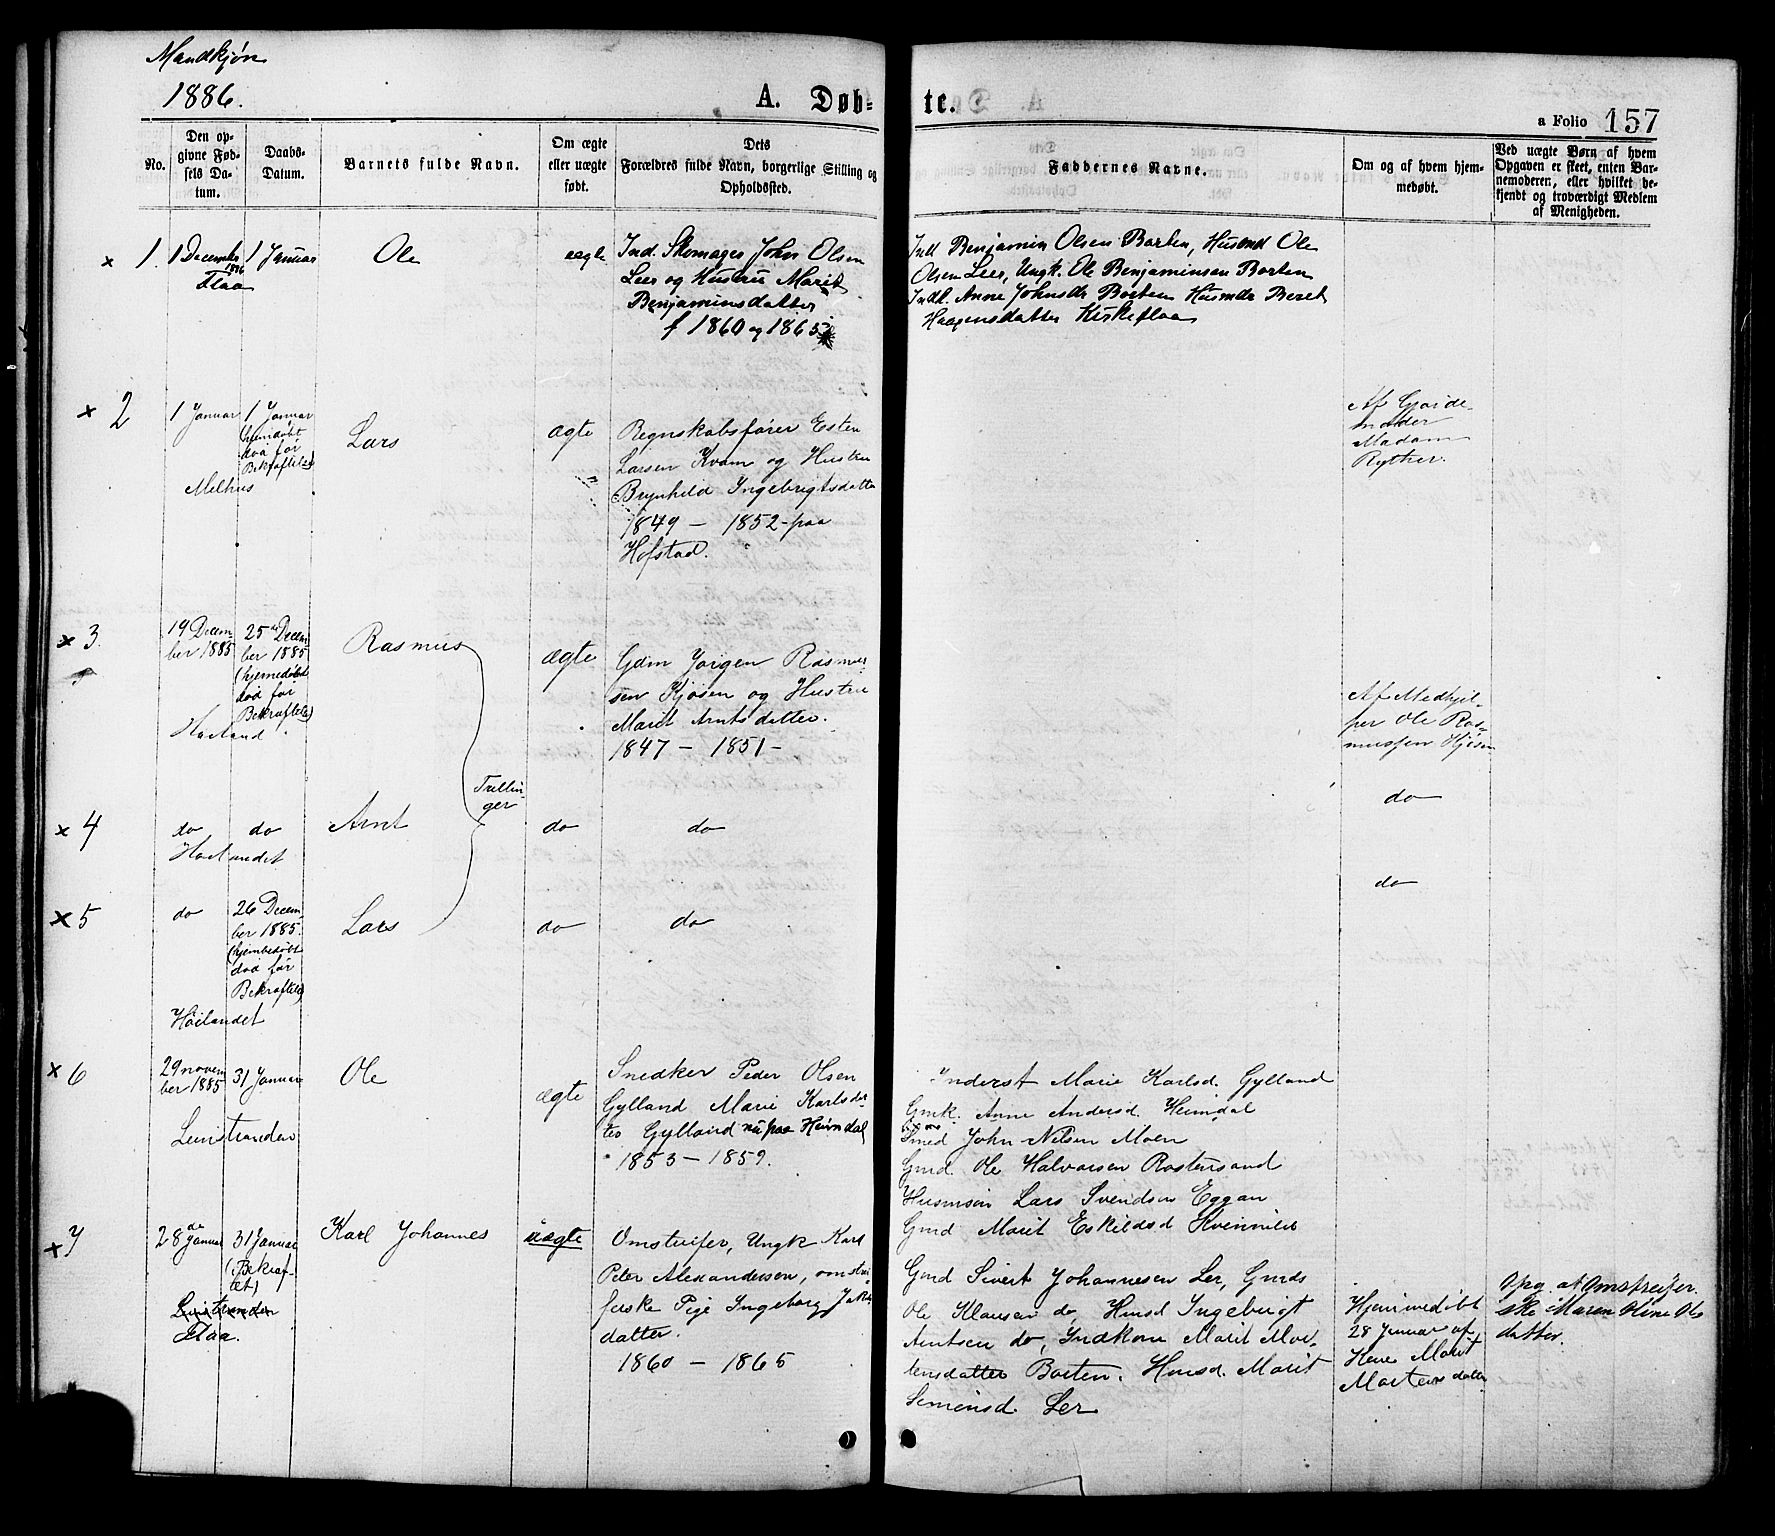 Mandkjøn
1886.
A. Døb-
te.
a Folio 157
No.
Den op-
givne Fød-
sels Da-
tum.
Daabs-
Datum.
Barnets fulde Navn.
Om ægte
eller uægte
født.
Dets
Forældres fulde Navn, borgerlige Stilling og
Opholdssted.
Faddernes Navne.
Om og af hvem hjem-
medøbt.
Ved uægte Børn af hvem
Opgaven er skeet, enten Bar-
nemoderen, eller hvilket be-
kjendt og troværdigt Medlem
af Menigheden.
x 1.
1 December
1886
Flaa
1 Januar
Ole
ægte
Ind. Skomager John Olsen
Leer og Hustru Marit
Benjaminsdatter
f 1860 og 1865
Ind Benjamin Olsen Borten, Husmd Ole
Olsen Leer, Ungk. Ole Benjaminsen Borten
Indl. Anne Johnsdr Borten Husmdr Beret
Haagensdatter Kirkeflaa
x 2
1 Januar
Melhus
1 Januar
(hjemdøbt
død før
Bekræftelse)
Lars
ægte
Regnskabsfører Esten
Larsen Kvam og Hustru
Brynhild Ingebrigtsdatter
1849 - 1852 - paa
Hofstad.
Af Gjorde-
moder
Madam
Ryther.
x 3.
19 Decem-
ber 1885
Høiland
25 Decem-
ber 1885
(hjemedøbt
død før
Bekræftelse)
Rasmus
ægte
Gdm Jørgen Rasmus-
sen Kjøsen og Hustru
Marit Arntsdatter.
1847 - 1851 -
Af Medhjel-
per Ole Ras-
mussen Kjøsen
Trillin-
ger
x 4
do
Høilandet
do
Arnt
do
do
do
x 5
do
Høilandet
26 Decem-
ber 1885.
(hjembedøbt
død før
Bekræftelse)
Lars
do
do
do
x 6
29 novem-
ber 1885
Leinstranden
31 Januar
Ole
ægte
Snedker Peder Olsen
Gylland Marie Karlsdat-
ter Gylland nu paa Heimdal
1853 - 1859.
Inderst Marie Karlsd. Gylland
Gmk. Anne Andersd. Heimdal
Smed John Nilsen Moen
Gmd. Ole Halvorsen Rostensand
Husmsøn Lars Svendsen Eggan
Gmd Marit Eskildsd Kvenild
x 7
28de Januar
Leinstranden
Flaa.
31 Januar
(Bekræf-
tet)
Karl Johannes
uægte
Omstreifer, Ungk Karl
Peter Alexandersen, omstrei-
ferske Pige Ingeborg Jakobs
datter.
1860 - 1865
Gmd Sivert Johannesen Ler, Gmds
Ole Klausen do, Husmd Ingebrigt
Arntsen do, Indkone Marit Mor-
tensdatter Borten. Husmd. Marit
Simonsd. Ler
Hjemmedøbt
28 Januar af
Kone Marit
Mortens datter
Opg. af Omstreifer
ske Maren Oline Ols
datter.